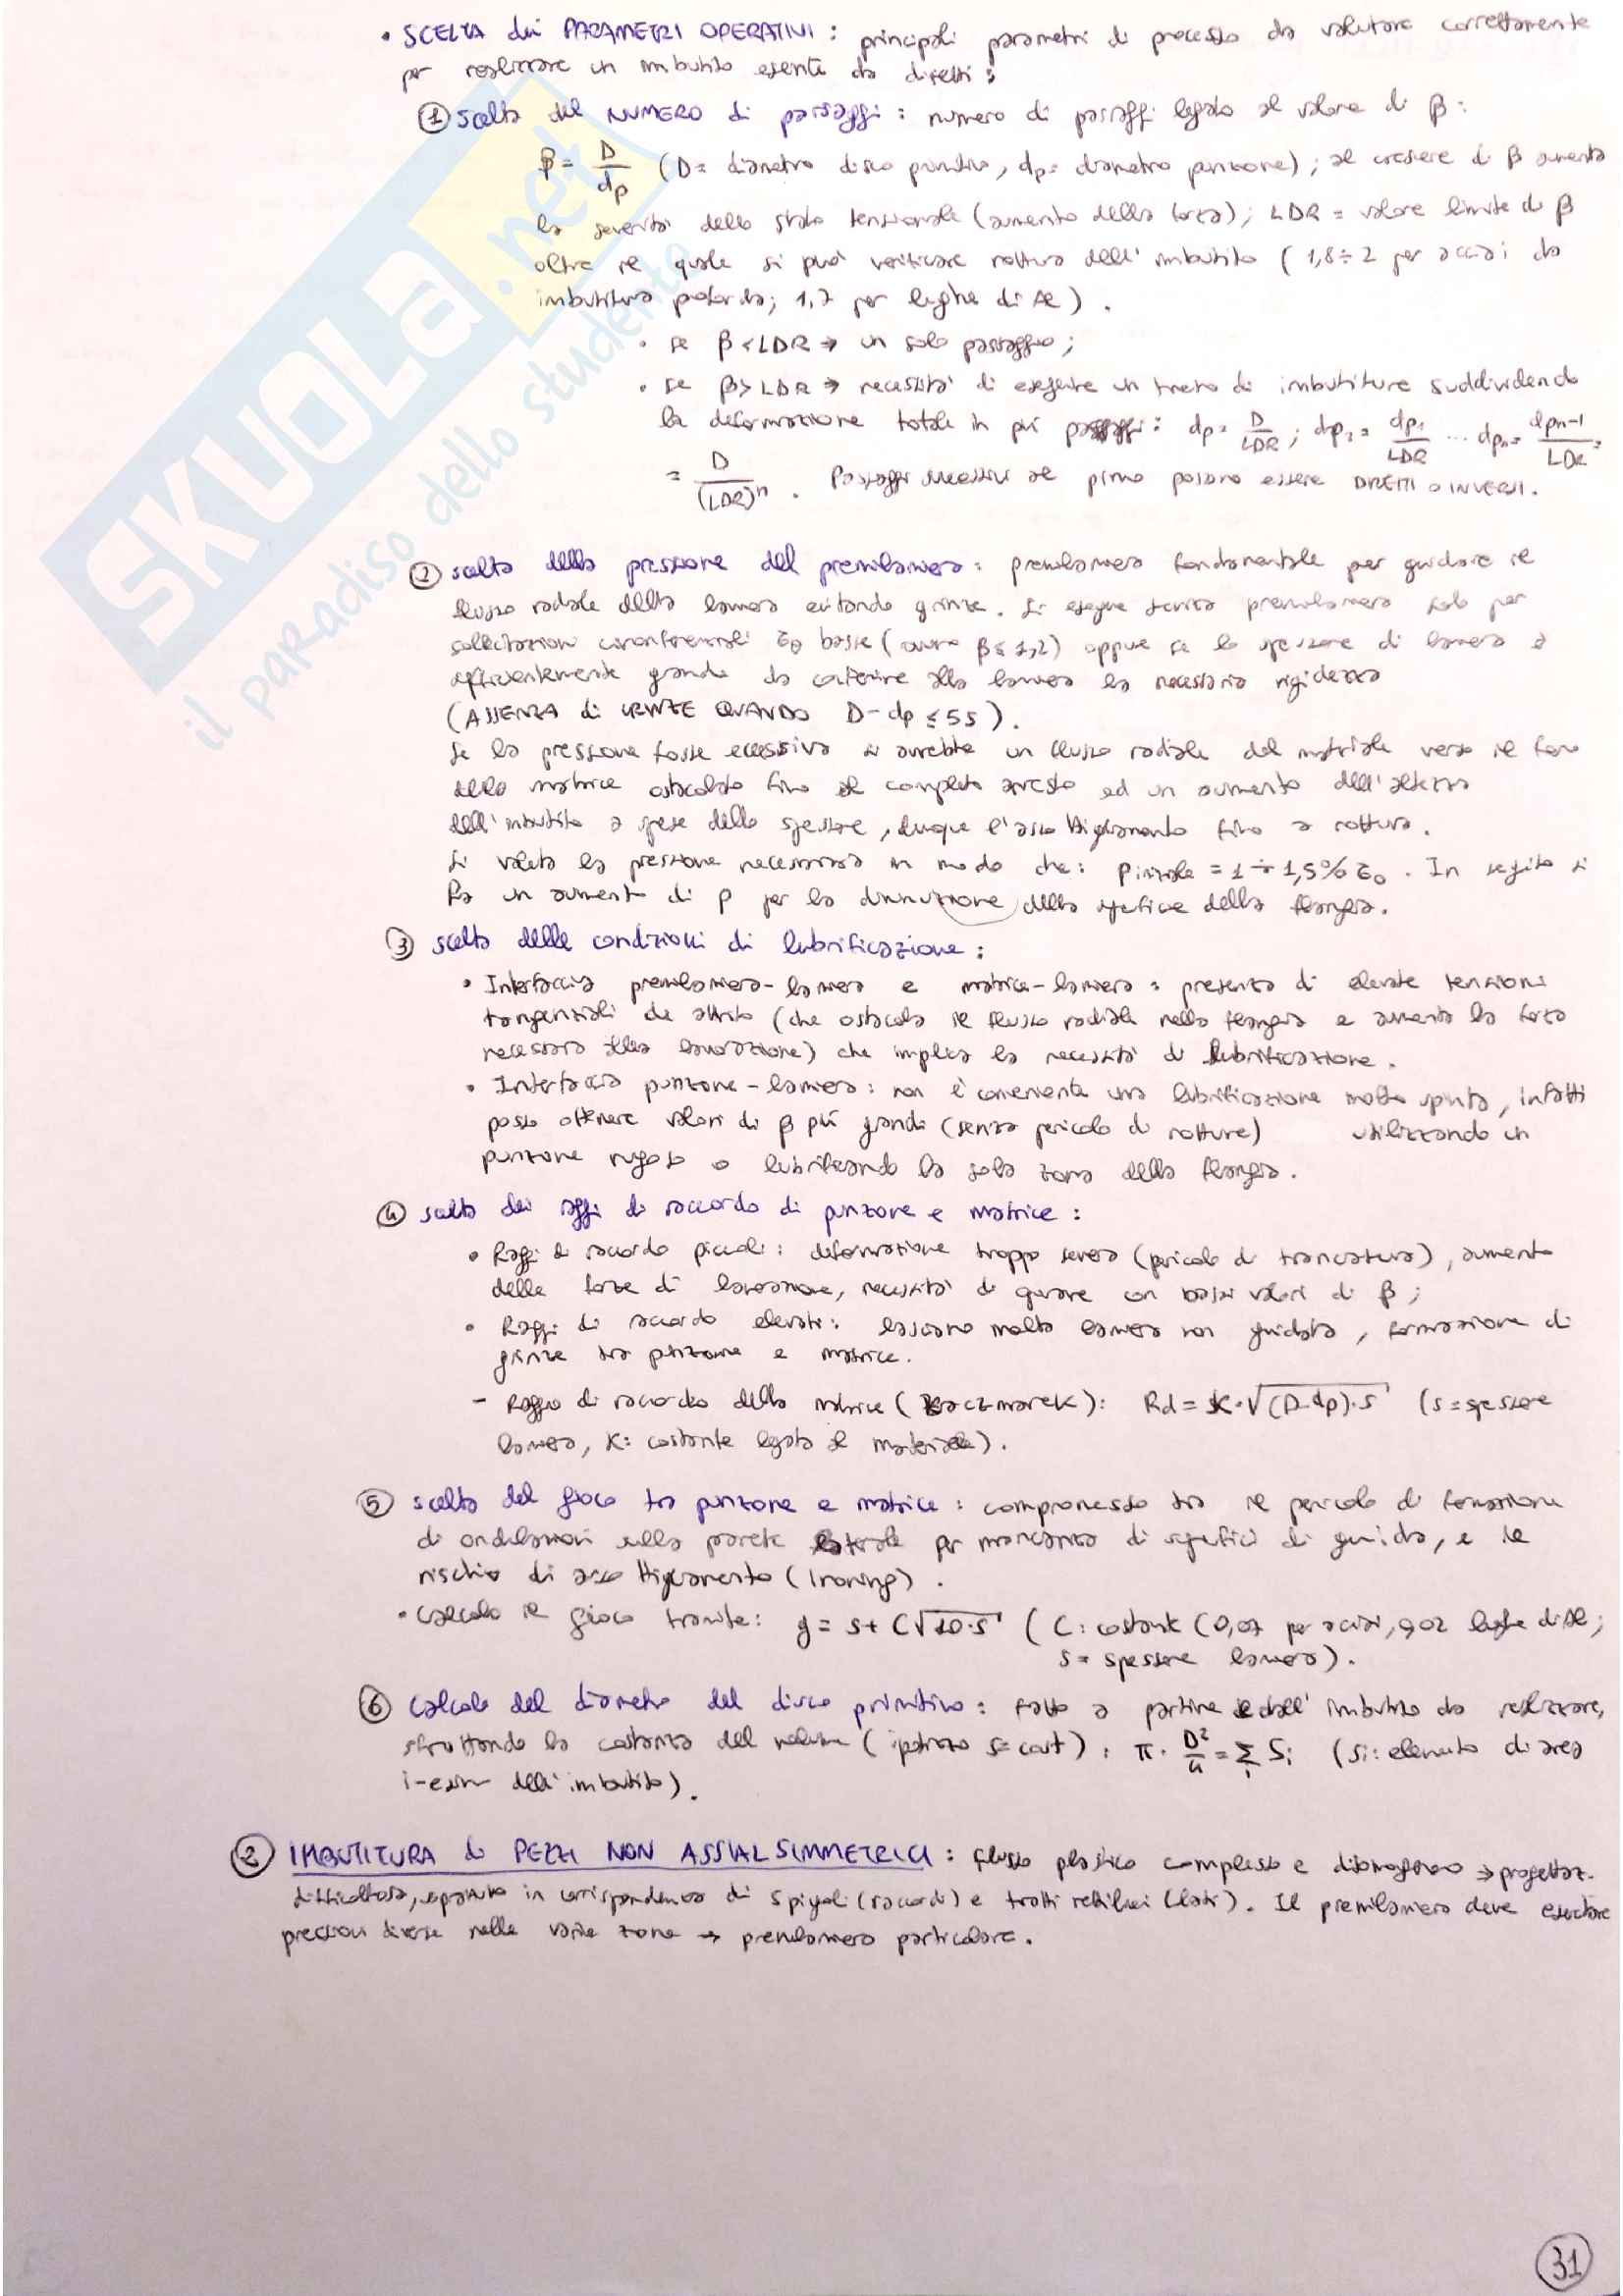 • SCELTA dei PARAMETRI OPERATIVI : principali parametri di processo da valutare correttamente
per realizzare un imbutito esente da difetti :
① scelta del NUMERO di passaggi : numero di passaggi legato al valore di β :
β = D/dp (D = diametro disco primitivo, dp = diametro punzone) ; al crescere di β aumenta
la severità dello stato tensionale (aumento della forza) ; LDR = valore limite di β
oltre il quale si può verificare rottura dell'imbutito ( 1,8÷2 per acciai da
imbutitura profonda; 1,7 per leghe di Al ) .
• se β < LDR → un solo passaggio ;
• se β > LDR → necessità di eseguire un treno di imbutiture suddividendo
la deformazione totale in più passaggi : dp = D/LDR ; dp2 = dp1/LDR ... dpn = dpn-1/LDR =
= D/(LDR)^n . Passaggi successivi al primo possono essere DIRETTI o INVERSI.
② scelta della pressione del premilamiera : premilamiera fondamentale per guidare il
flusso radiale della lamiera evitando grinze. Si esegue senza premilamiera solo per
sollecitazioni circonferenziali σθ basse ( ovvero β ≤ 1,2) oppure se lo spessore di lamiera è
sufficientemente grande da conferire alla lamiera la necessaria rigidezza
(ASSENZA di GRINZE QUANDO D-dp ≤ 5s ) .
Se la pressione fosse eccessiva si avrebbe un flusso radiale del materiale verso il foro
della matrice ostacolato fino al completo arresto ed un aumento dell'altezza
dell'imbutito a spese dello spessore , dunque l'assottigliamento fino a rottura.
Si valuta la pressione necessaria in modo che : p iniziale = 1 ÷ 1,5% σ0 . In seguito si
ha un aumento di p per la diminuzione della superficie della flangia.
③ scelta delle condizioni di lubrificazione :
• Interfaccia premilamiera-lamiera e matrice-lamiera : presenza di elevate tensioni
tangenziali da attrito (che ostacola il flusso radiale nella flangia e aumenta la forza
necessaria alla lavorazione) che implica la necessità di lubrificazione .
• Interfaccia punzone-lamiera : non è conveniente una lubrificazione molto spinta, infatti
posso ottenere valori di β più grandi (senza pericolo di rotture) utilizzando un
punzone rugoso o lubrificando la sola zona della flangia .
④ scelta dei raggi di raccordo di punzone e matrice :
• Raggi di raccordo piccoli : deformazione troppo severa (pericolo di tranciatura) , aumento
delle forze di lavorazione, necessità di operare con bassi valori di β ;
• Raggi di raccordo elevati : lasciano molta lamiera non guidata , formazione di
grinze tra punzone e matrice.
- Raggio di raccordo della matrice ( Kaczmarek) : Rd = K·√(D-dp)·s (s = spessore
lamiera, K: costante legata al materiale) .
⑤ scelta del gioco tra punzone e matrice : compromesso tra il pericolo di formazione
di ondulazioni sulla parete laterale per mancanza di superfici di guida, e il
rischio di assottigliamento (Ironing) .
• calcolo il gioco tramite : g = s + C√10·s ( C : costante (0,07 per acciai, 0,02 leghe di Al ;
s = spessore lamiera) .
⑥ calcolo del diametro del disco primitivo : fatto a partire dall'imbutito da realizzare,
sfruttando la costanza del volume ( ipotizzo s = cost ) : π · D²/4 = Σi Si (Si : elemento di area
i-esimo dell'imbutito) .
② IMBUTITURA di PEZZI NON ASSIALSIMMETRICI : flusso plastico complesso e disomogeneo → progettaz.
difficoltosa, in corrispondenza di spigoli (raccordi) e tratti rettilinei (lati) . Il premilamiera deve esercitare
pressioni diverse nelle varie zone → premilamiera particolare .
31
SKUOLA.net
il paradiso dello studente